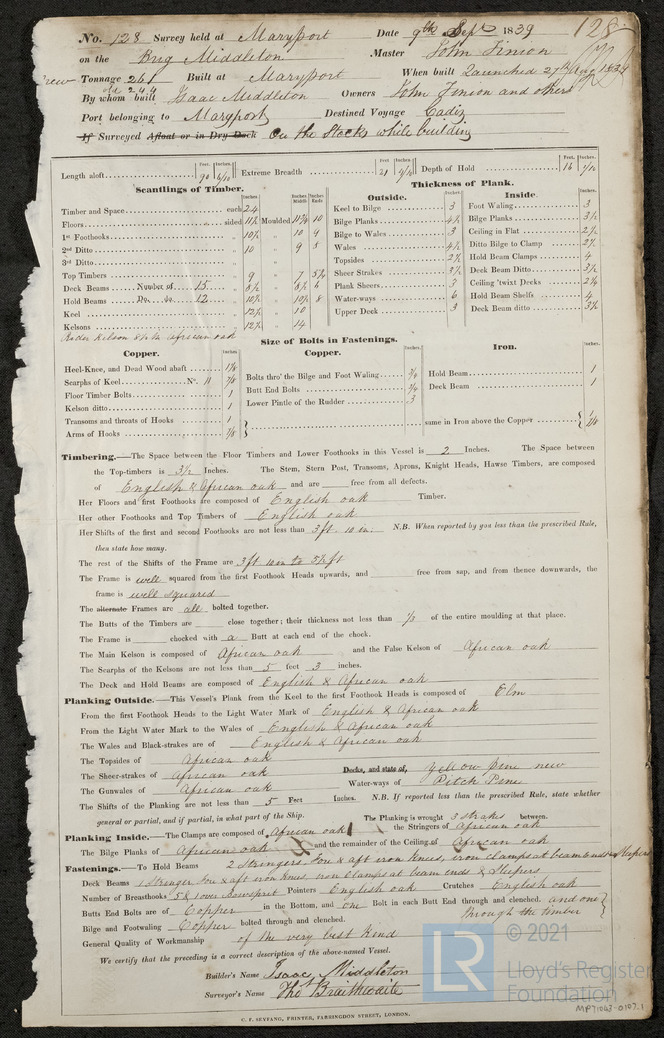 No. 128 Survey held at Maryport Date 9th Sept 1839 128
on the Brig Middleton Master John Tinion
new Tonnage 261 Built at Maryport When built Launched 27th Aug 1839
old 244
By whom built Isaac Middleton Owners John Tinion and others
Port belonging to Maryport Destined Voyage Cadiz
If Surveyed Afloat or in Dry Dock On the Stocks while building
Feet. Inches. Feet. Inches. Feet. Inches.
Length aloft 90 Extreme Breadth 21 Depth of Hold 16
Scantlings of Timber.
Inches Inches Middle Inches Ends
Timber and Space each 24
Floors sided 11½ Moulded 10
1st Foothooks 10½ 10 9
2nd Ditto 10 9
3rd Ditto
Top Timbers 9 7 5½
Deck Beams Number of 15 8½ 6
Hold Beams Do. do. 12 10½ 8
Keel 12½ 10
Kelsons 12½ 14
Rider Kelson African oak
Thickness of Plank.
Outside.
Inches
Keel to Bilge 3
Bilge Planks 4½
Bilge to Wales 3
Wales 4½
Topsides 2½
Sheer Strakes 3½
Plank Sheers 3
Water-ways 6
Upper Deck 3
Inside.
Inches
Foot Waling 3
Bilge Planks 3½
Ceiling in Flat 2½
Ditto Bilge to Clamp 2½
Hold Beam Clamps 4
Deck Beam Ditto 3½
Ceiling 'twixt Decks 2¼
Hold Beam Shelfs 4
Deck Beam ditto 3½
Size of Bolts in Fastenings.
Copper.
Inches
Heel-Knee, and Dead Wood abaft 1⅛
Scarphs of Keel No. 11 ⅞
Floor Timber Bolts 1
Kelson ditto 1
Transoms and throats of Hooks 1
Arms of Hooks ⅞
Copper.
Inches
Bolts thro' the Bilge and Foot Waling ¾
Butt End Bolts ¾
Lower Pintle of the Rudder 3
Iron.
Inches
Hold Beam 1
Deck Beam 1
same in Iron above the Copper
Timbering.—The Space between the Floor Timbers and Lower Foothooks in this Vessel is 2 Inches. The Space between
the Top-timbers is 3½ Inches. The Stem, Stern Post, Transoms, Aprons, Knight Heads, Hawse Timbers, are composed
of English & African oak and are free from all defects.
Her Floors and first Foothooks are composed of English oak Timber.
Her other Foothooks and Top Timbers of English oak
Her Shifts of the first and second Foothooks are not less than 3 ft. 10 in. N.B. When reported by you less than the prescribed Rule,
then state how many.
The rest of the Shifts of the Frame are 3 ft 10 in to 5½ ft
The Frame is well squared from the first Foothook Heads upwards, and free from sap, and from thence downwards, the
frame is well squared
The alternate Frames are all bolted together.
The Butts of the Timbers are close together; their thickness not less than ⅓ of the entire moulding at that place.
The Frame is chocked with a Butt at each end of the chock.
The Main Kelson is composed of African oak and the False Kelson of African oak
The Scarphs of the Kelsons are not less than 5 feet 3 inches.
The Deck and Hold Beams are composed of English & African oak
Planking Outside.—This Vessel's Plank from the Keel to the first Foothook Heads is composed of Elm
From the first Foothook Heads to the Light Water Mark of English & African oak
From the Light Water Mark to the Wales of English & African oak
The Wales and Black-strakes are of English & African oak
The Topsides of African oak
The Sheer-strakes of African oak Decks, and state of, Yellow Pine new
The Gunwales of African oak Water-ways of Pitch Pine
The Shifts of the Planking are not less than 5 Feet Inches. N.B. If reported less than the prescribed Rule, state whether
general or partial, and if partial, in what part of the Ship. The Planking is wrought 3 strakes between.
Planking Inside.—The Clamps are composed of African oak the Stringers of African oak
The Bilge Planks of African oak and the remainder of the Ceiling of African oak
Fastenings.—To Hold Beams 2 Stringers. Fou & aft iron Knees, iron clamps at beam ends & Sleepers
Deck Beams 1 Stringer Fou & aft iron knees, iron clamps at beam ends & Sleepers
Number of Breasthooks 5 & 1 over Bowsprit Pointers English oak Crutches English oak
Butts End Bolts are of Copper in the Bottom, and one Bolt in each Butt End through and clenched. and one
through the timber
Bilge and Footwaling Copper bolted through and clenched.
General Quality of Workmanship of the very best Kind
We certify that the preceding is a correct description of the above-named Vessel.
Builder's Name Isaac Middleton
Surveyor's Name Tho Braithwaite
C. F. SEYFANG, PRINTER, FARRINGDON STREET, LONDON.
LR © 2021
Lloyd's Register
Foundation
MP71003-0107.1